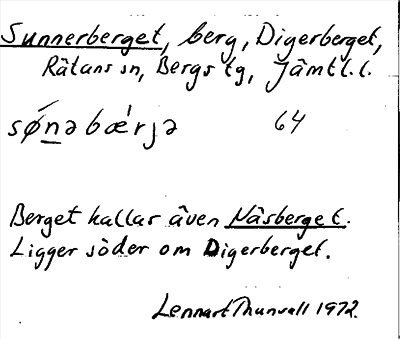 Sunnerberget, berg, Digerberget,
Rätans sn, Bergs tg, Jämtl. l.
sǿn̲əbæ'rjə 64
Berget kallas även Näsberget.
Ligger söder om Digerberget.
Lennart Thunvall 1972.